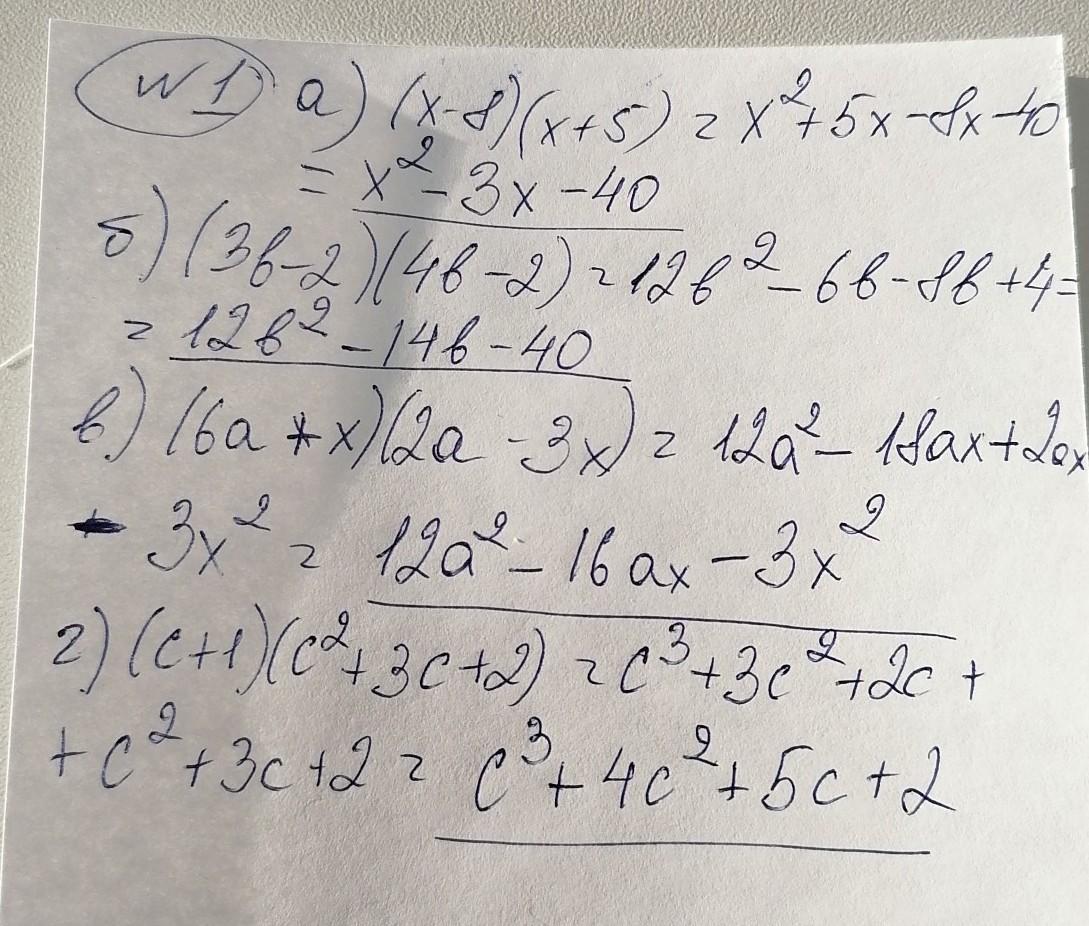 №1 а) (x-8)(x+5) = x²+5x-8x-40
= x²-3x-40
б) (3b-2)(4b-2) = 12b²-6b-8b+4=
= 12b²-14b-40
в) (6a+x)(2a-3x) = 12a²-18ax+2ax
- 3x² = 12a²-16ax-3x²
г) (c+1)(c²+3c+2) = c³+3c²+2c+
+c²+3c+2 = c³+4c²+5c+2